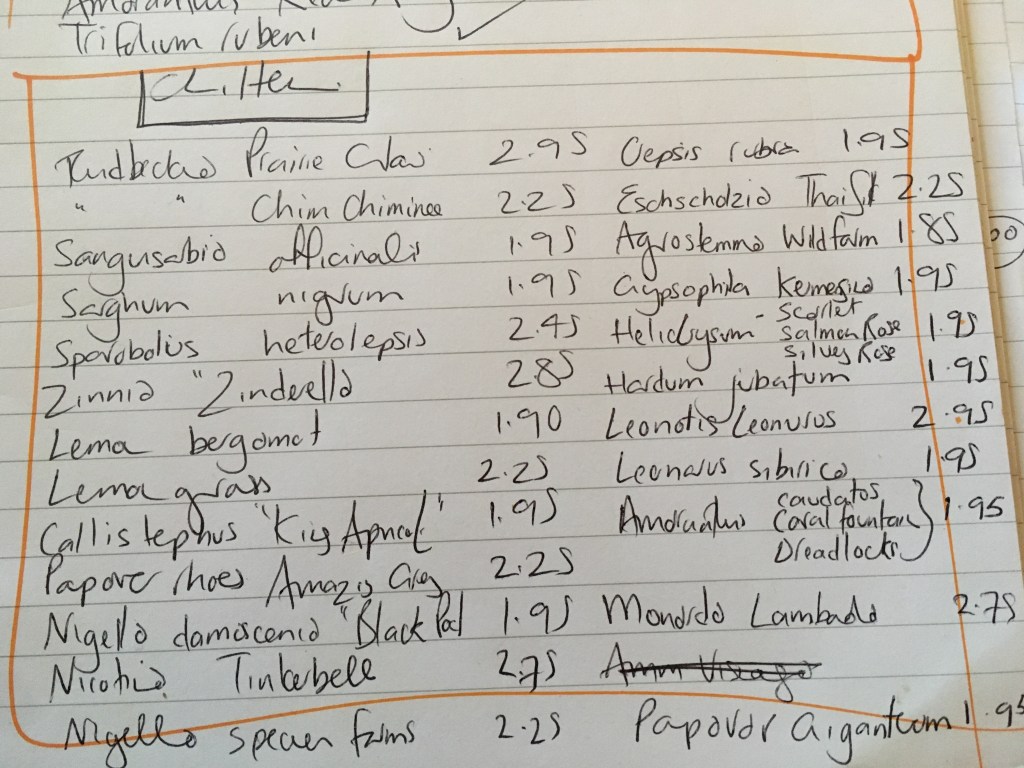 Trifolium rubeni
Chilten
Rudbeckia Prairie Glow 2.95 Crepsis rubra 1.95
" " Chim Chiminee 2.25 Eschscholzia Thai Silk 2.25
Sanguisorbia officinalis 1.95 Agrostemma Wildfarm 1.85
Sorghum nigrum 1.95 Gypsophila Kermesina 1.95
Sporobolus heterolepsis 2.45 Helichrysum - Scarlet
Salmon Rose 1.95
Silvery Rose
Zinnia "Zinderella 2.85 Hordum jubatum 1.95
Lema bergamot 1.90 Leonotis Leonurus 2.95
Lema grass 2.25 Leonarus sibirica 1.95
Callistephus "King Apricot" 1.95 Amaranthus caudatos,
Coral fountain 1.95
Dreadlocks
Papaver rhoes Amazing Grey 2.25
Nigella damascenia "Black Pod 1.95 Monarda Lambada 2.75
Nicotia Tinkerbell 2.75
Nigella specien farms 2.25 Papavar Giganteum 1.95